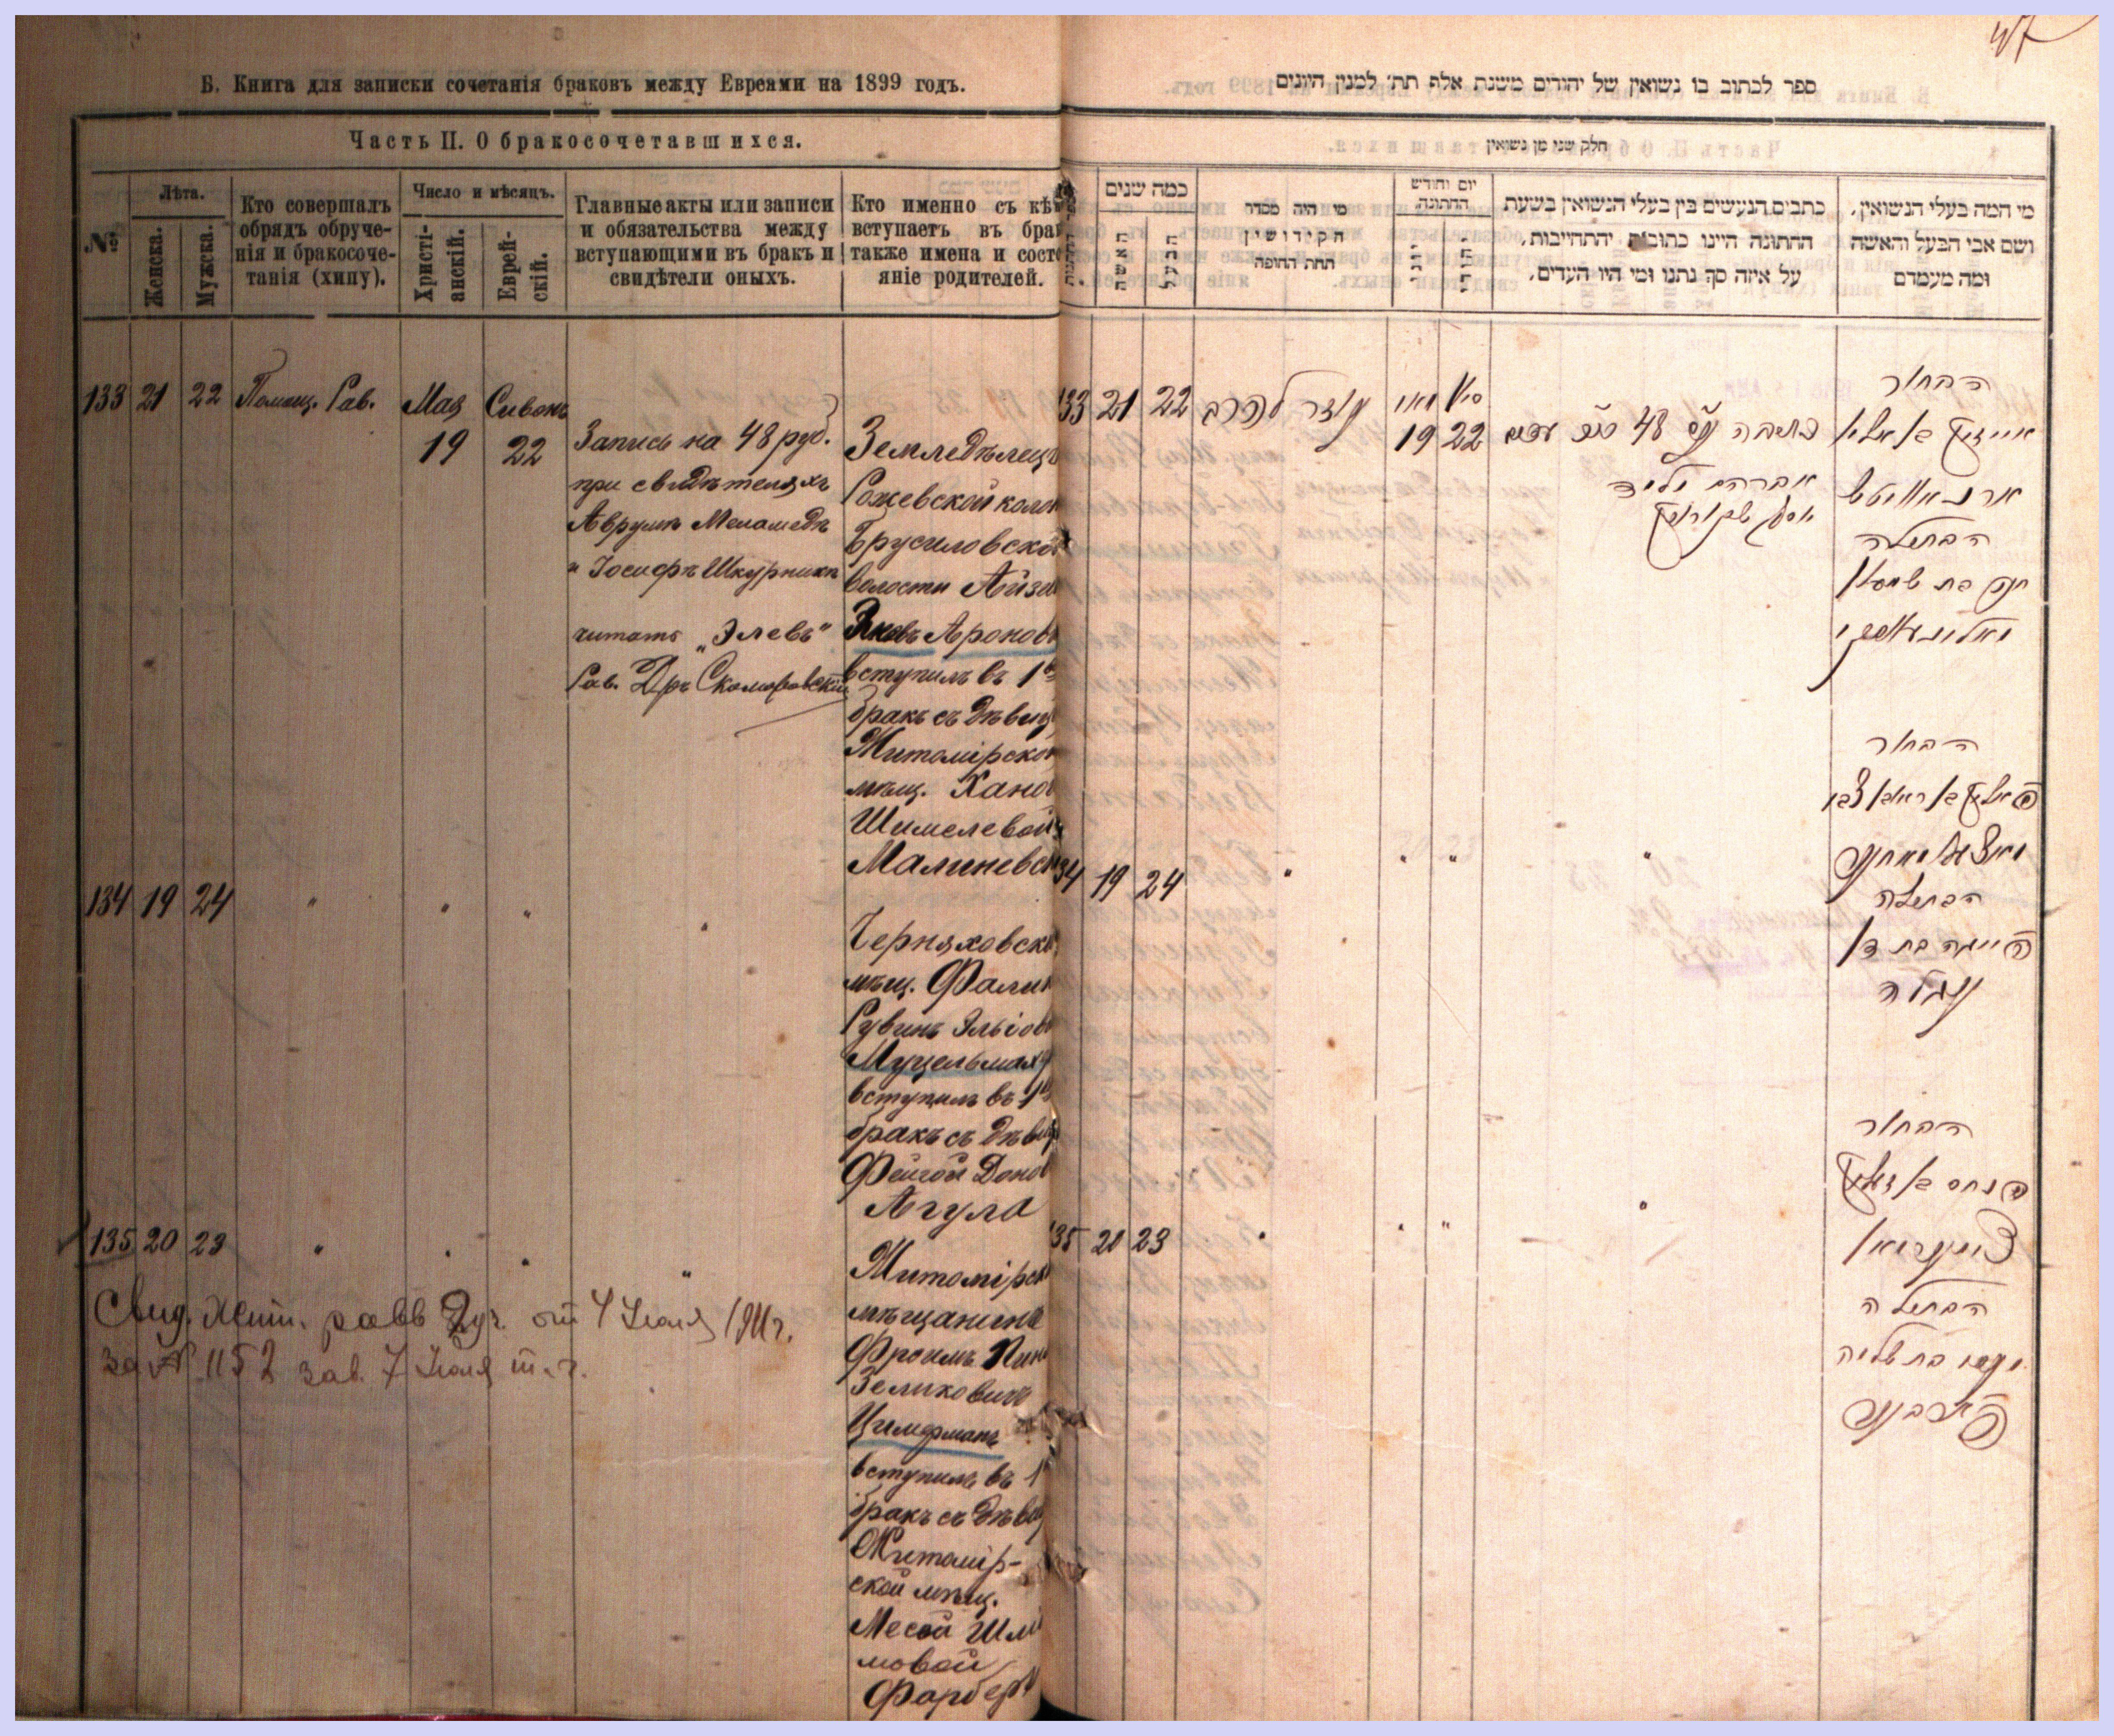 Б. Книга для записки сочетанія браковъ между Евреями на 1899 годъ.
Часть II. О бракосочетавшихся.
№
Лѣта.
Женска.
Мужска.
Кто совершалъ
обрядъ обруче-
нія и бракосоче-
танія (хипу).
Число и мѣсяцъ.
Христі-
анскій.
Еврей-
скій.
Главные акты или записи
и обязательства между
вступающими въ бракъ и
свидѣтели оныхъ.
Кто именно съ кѣ
вступаетъ въ бра
также имена и сост
яніе родителей.
133 21 22 Помощ. Рав. Мая Сивонъ
19 22
Запись на 48 руб.
при свидѣтеляхъ
Аврумъ Меламедъ
и Іосифъ Шкурникъ
читать „Элевъ"
Рав. Дръ Скомаровскій
Земледѣлецъ
Рожевской коло
Брусиловско
волости Айзи
Элевъ Аронов
вступилъ въ 1
бракъ съ дѣвиц
Житомірско
мѣщ. Ханой
Шимелевой
Малиневск
134 19 24 " " " "
Черняховск
мѣщ. Фалик
Рувинъ Эльіов
Муцельмах
вступилъ въ 1
бракъ съ дѣвиц
Фейгой Донов
Агула
135 20 23 " " " "
Житомірск
мѣщанинъ
Фроимъ Пин
Зеликовичъ
Цимерманъ
вступилъ въ 1
бракъ съ дѣвиц
Житомір-
ской мѣщ.
Месой Шлі
мовой
Фарберъ
Свид. Жит. равв Дух. от 4 Июля 1911 г.
за № 1152 зав. 7 Июля т. г.
47
ספר לכתוב בו נשואין של יהודים משנת אלף תת׳ למנין היונים
חלק שני מן נשואין
כמה שנים
האשה
הבעל
מי היה מסדר
הקידושין
תחת החופה
יום וחודש
החתונה
יוני
יהודי
כתבים הנעשים בין בעלי הנשואין בשעת
החתונה היינו כתובות והתחייבות,
על איזה סך נתנו ומי היו העדים,
מי המה בעלי הנשואין,
ושם אבי הבעל והאשה
ומה מעמדם
133 21 22 עוזר להרב מאי סיון
19 22
כתובה 48
אברהם
יוסף שקורניק
הבחור
אייזיק בן אלי׳
הבתולה
חנה בת שמעון
מאלינעווסקי
34 19 24 " " " "
הבחור
הבתולה
פייגה בת דן
אגולה
135 20 23 " " " "
הבחור
פנחס בן זעליק
צימערמאן
הבתולה
בת שלמה
פארבער